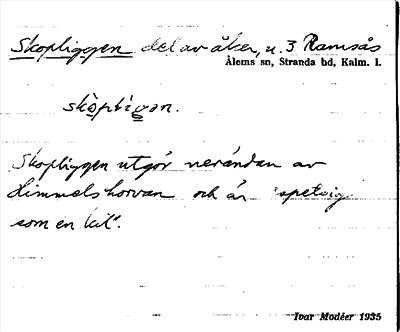 Skopliggen del av åker, n. 3 Ramsås
Ålems sn, Stranda hd, Kalm. l.
skòpligən.
Skopliggen utgör nerändan av
Himmelshorvan och är "spetsig
som en kil".
Ivar Modéer 1935